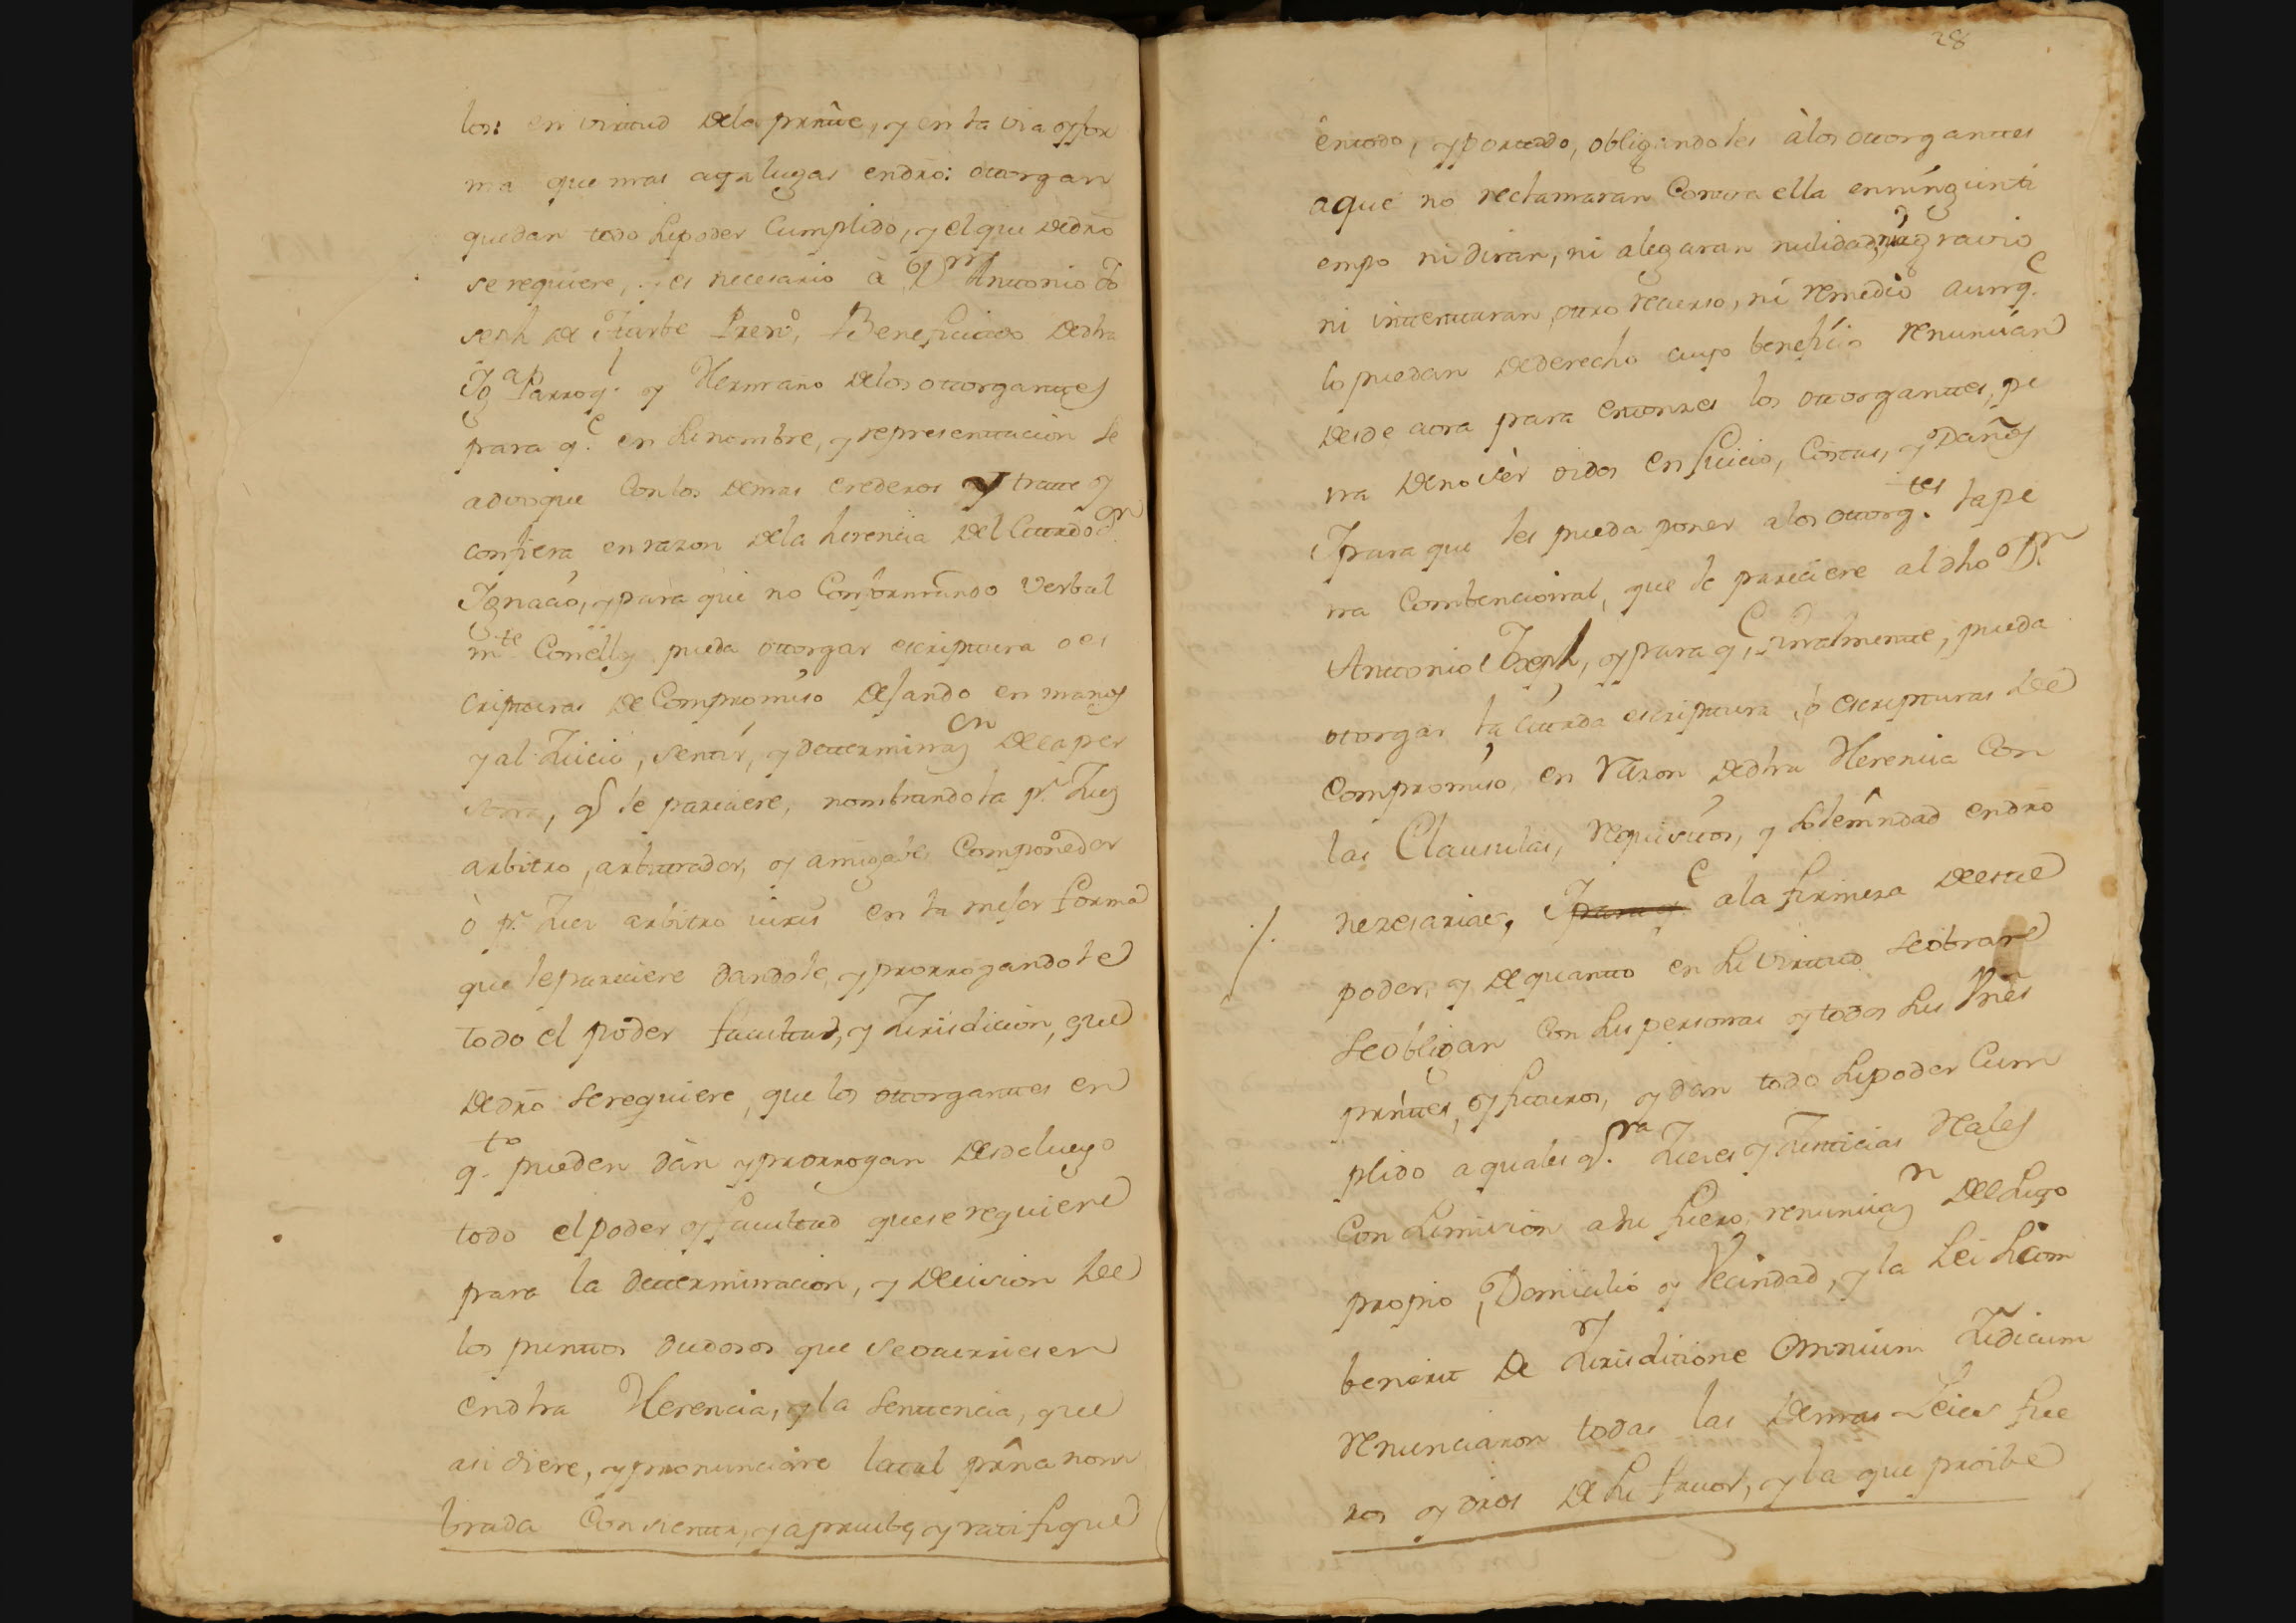 los: en virtud dela prnte, y en la via y for
ma que mas aya lugar endro: otorgan
quedan todo supoder Cumplido, y elque dedro
serequiere, y es necesario à Dn Antonio Jo
seph de Iturbe Presvo, Beneficiado dedha
Iga Parroql y Hermano delos otorgantes
para qe en sunombre, y representacion se
advoque Conlos demas erederos y trate y
confiera enrazon dela herencia del Cittado Dn
Ignacio, y para que no Conformando Verbal
mte Conellos pueda otorgar escriptura o es
cripturas de Compromiso dejando en manos
y al Juicio, sentir, y determinazn dela per
sona, q le pareciere, nombrandola pr Juez
arbitro, arbitrador, y amigable Componedor
ò pr Juez arbitro iuris en la mejor forma
que lepareciere dandole, y prorrogandole
todo el poder facultad, y Jurisdicion, que
dedro serequiere, que los otorgantes en
qto pueden dan y prorrogan desdeluego
todo elpoder y facultad queserequiere
para la determinacion, y decision de
los puntos dudosos que seocurriesen
endha Herencia, y la sentencia, que
asi diere, y pronunciare latal prna nom
brada Consienta, y apruebe, y ratifique
28
entodo, y portodo, obligandoles àlos otorgantes
aque no reclamaran Contra ella enningunti
empo ni diran, ni alegaran nulidad, ni agravio
ni intentaran otro recurso, ni remedio aunqe
lo puedan dederecho cuyo beneficio renuncian
desde aora para entonzes los otorgantes, pe
na denosèr oidos en Juicio, Costas, y Daños
Ipara que les pueda poner alos otorgtes lape
na Combencional, que le pareciere aldho Dn
Antonio Joseph, y para qe finalmente, pueda
otorgar la cittada escriptura, ò escripturas de
Compromiso, en razon dedha Herencia Con
las Clausulas, requisitos, y solemnidad endro
nezesarias, Ipara qe ala firmeza deeste
poder, y dequanto en su virtud seobrare
seobligan Con sus personas y todos sus Vnes
prntes, y futuros, y dan todo supoder Cum
plido aqualesqra Juezes y Justicias Reales
Con sumision asu fuero, renunciazn desuyo
propio, Domicilio y Vecindad, y la Lei sicom
benerit de Jurisdicione Omnium Judicum
renunciaron todas las demas Leies fue
ros y dros de su favor, y la que proibe